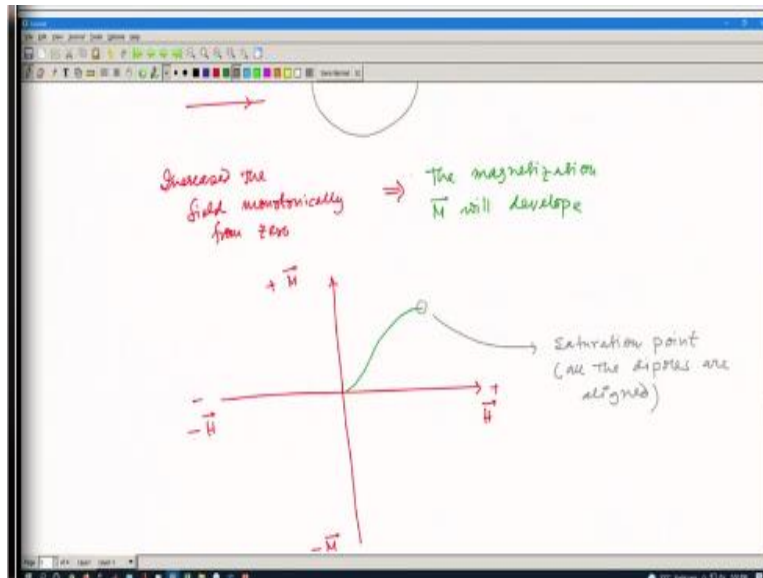 Increased the
field monotonically
from zero
⇒
The magnetization
M⃗ will develope
+ M⃗
Saturation point
(all the dipoles are
aligned)
-
+
- H⃗
H⃗
- M⃗